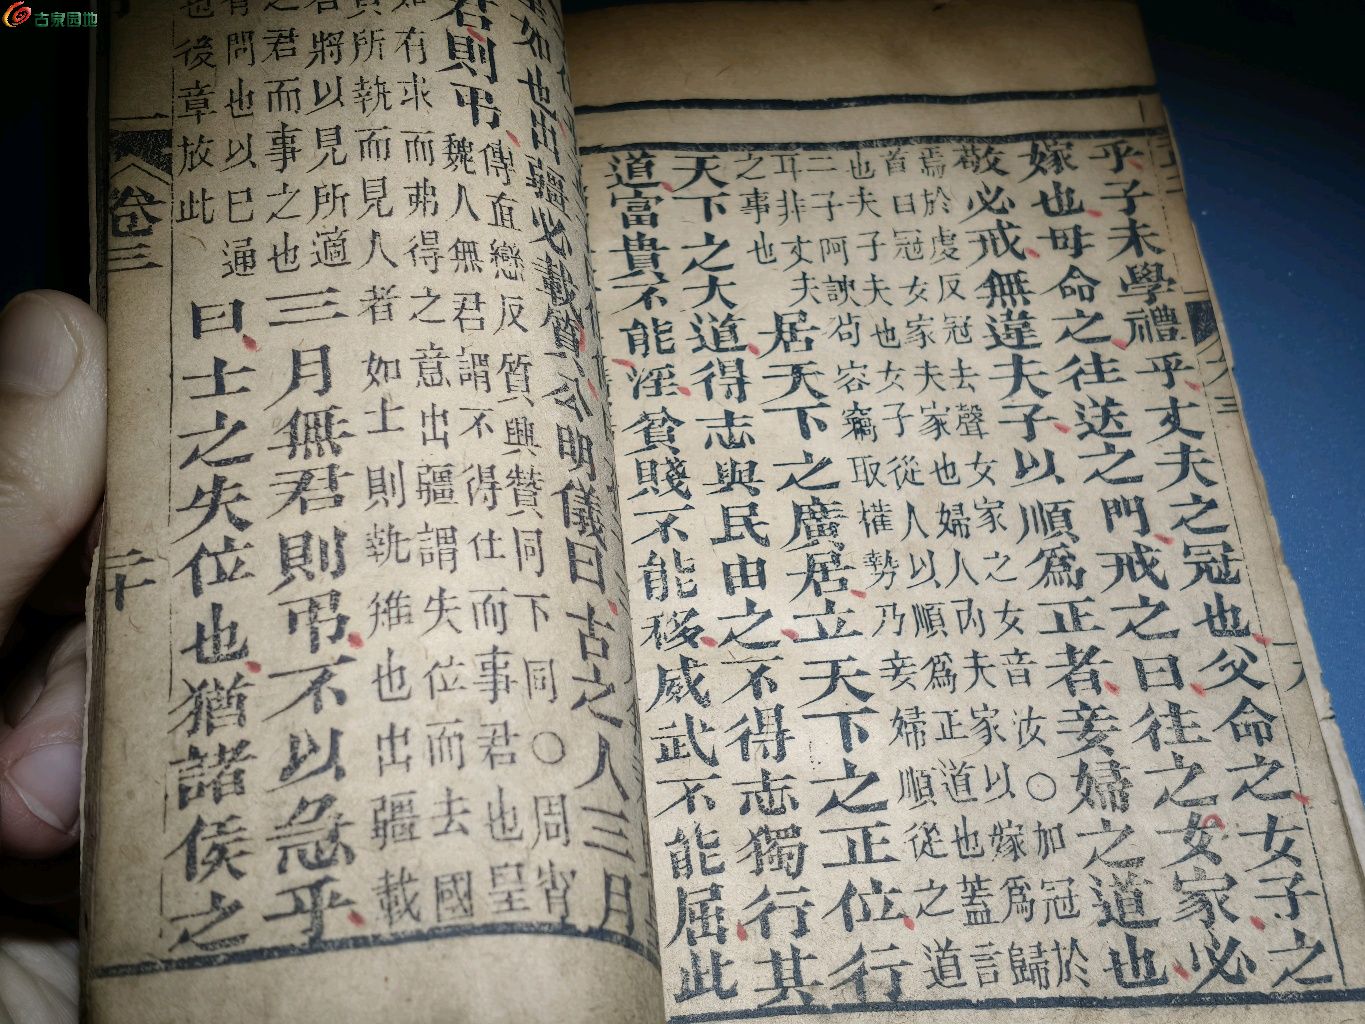 古泉园地
乎子未學禮乎丈夫之冠也父命之女子之
嫁也母命之往送之門戒之曰往之女家必
敬必戒無違夫子以順爲正者妾婦之道也
焉於虔反冠去聲女家之女音汝○加冠於
首曰冠女家夫家也婦人內夫家以嫁爲歸
也夫子夫也女子從人以順爲正道也蓋言
二子阿諛苟容竊取權勢乃妾婦順從之道
耳非丈夫
之事也
居天下之廣居立天下之正位行
天下之大道得志與民由之不得志獨行其
道富貴不能淫貧賤不能移威武不能屈此
如也出疆必載質公明儀曰古之人三月
君則弔
傳直戀反質與贄同下同○周霄
魏人無君謂不得仕而事君也皇
如有求而弗得之意出疆謂失位而去國
質所執而見人者如士則執雉也出疆載
將以見所適
之君而事之也
三月無君則弔不以急乎
有問也以已通
也後章放此
曰士之失位也猶諸侯之
卷三
二十